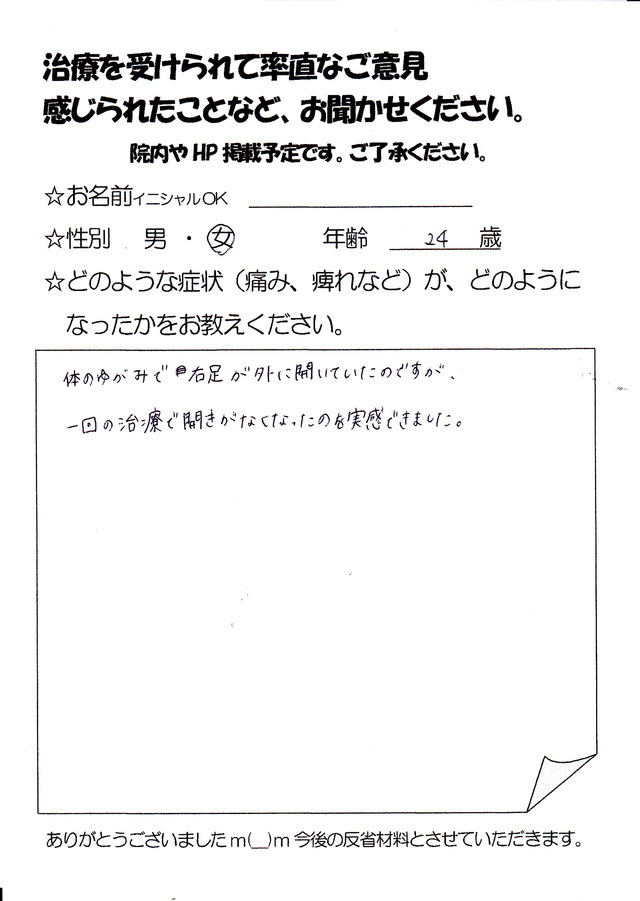 治療を受けられて率直なご意見
感じられたことなど、お聞かせください。
院内やHP掲載予定です。ご了承ください。
☆お名前イニシャルOK
☆性別 男 ・ 女 年齢 24 歳
☆どのような症状（痛み、痺れなど）が、どのように
なったかをお教えください。
体のゆがみで右足が外に開いていたのですが、
一回の治療で開きがなくなったのを実感できました。
ありがとうございましたm(__)m今後の反省材料とさせていただきます。